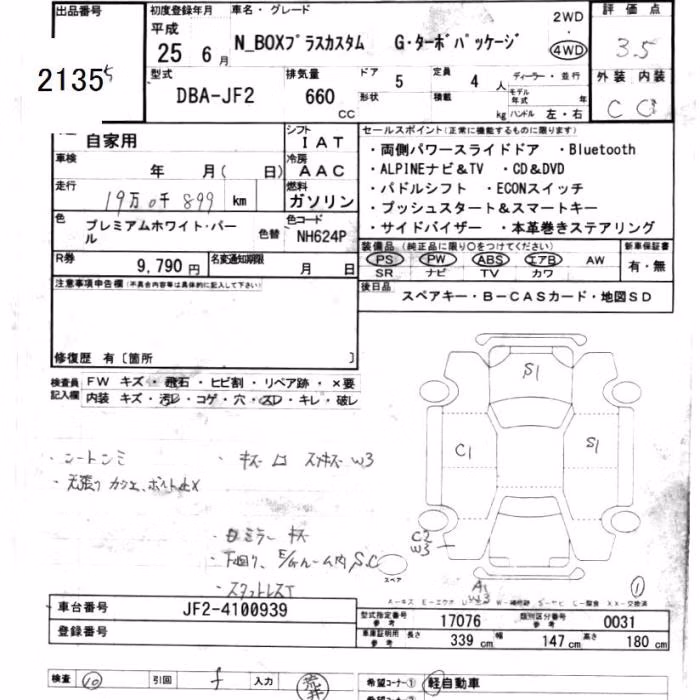 出品番号
初度登録年月
車名・グレード
評価点
21355
平成
25 6月
N_BOXプラスカスタム G・ターボパッケージ
2WD
・
4WD
3.5
型式
DBA-JF2
排気量
660 CC
ドア 5
形状
定員 4人
積載 kg
ディーラー・並行
モデル年式 年
ハンドル 左・右
外装 内装
C C
自家用
シフト
IAT
車検 年 月( 日)
冷房
AAC
走行 19万0千899 km
燃料
ガソリン
色
プレミアムホワイト・パール
色替
色コード
NH624P
R券 9,790円
名変通知期限 月 日
セールスポイント(正常に機能するものに限ります)
・両側パワースライドドア ・Bluetooth
・ALPINEナビ&TV ・CD&DVD
・パドルシフト ・ECONスイッチ
・プッシュスタート&スマートキー
・サイドバイザー ・本革巻きステアリング
装備品 (純正品に限り○をつけてください)
PS PW ABS エアB AW
SR ナビ TV カワ
新車保証書
有・無
後日品
スペアキー・B-CASカード・地図SD
注意事項申告欄(不具合内容等は具体的に記入して下さい)
修復歴 有〔箇所 〕
検査員記入欄
FW キズ・飛石・ヒビ割・リペア跡・×要
内装 キズ・汚レ・コゲ・穴・スレ・キレ・破レ
・シートシミ
・キズ
W3
・天張り
・ミラー キズ
・下回り、E/Gルーム内 S.C
・スタットレスT
S1
C1
S1
C2
W3
スペア
A1
W3
①
車台番号 JF2-4100939
登録番号
型式指定番号 参考 17076
類別区分番号 参考 0031
車庫証明用 参考
長さ 339 cm 幅 147 cm 高さ 180 cm
検査 10
引回
入力
荒井
希望コーナー① 軽自動車
希望コーナー②